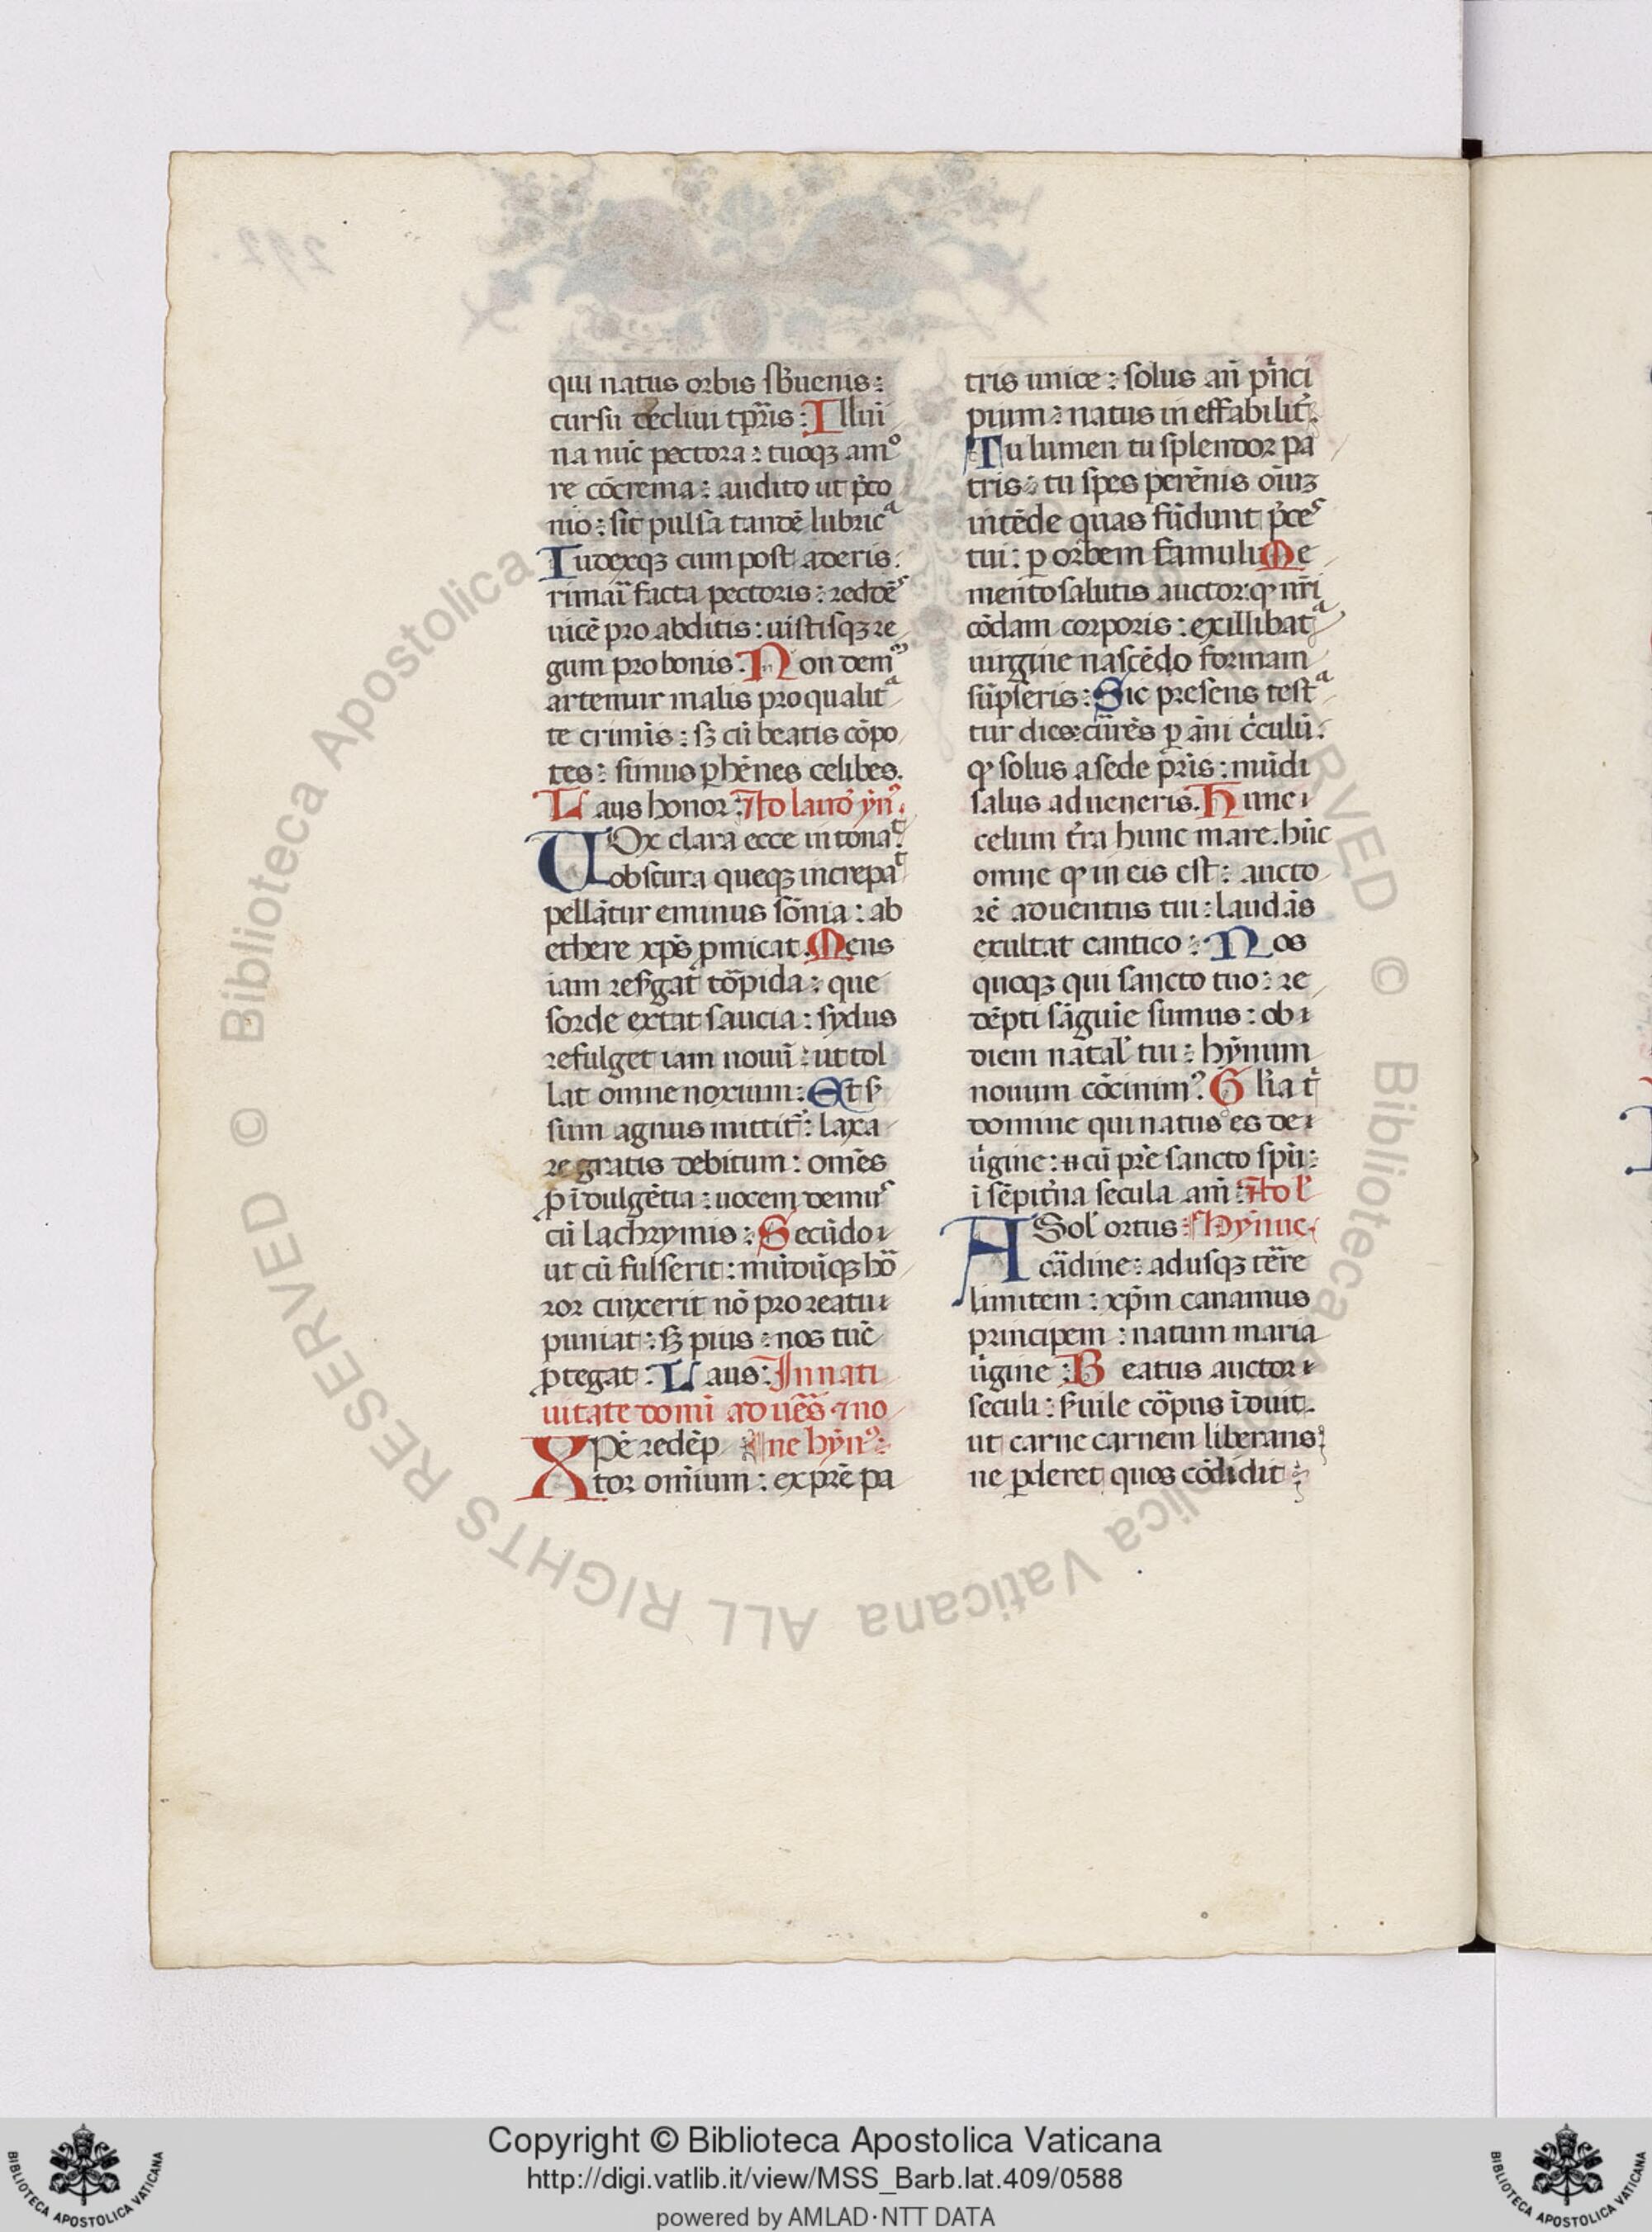 qui natus orbis sb̄uenis:
cursu decliui tp̄ris: Illui
na nūc pectora: tuoqꝫ amͦ
re cōcrema: audito ut p̄co
nio: sit pulsa tandē lubricͣ
Iudexqꝫ cum post aderis:
rimari facta pectoris: reddēˢ
uicē pro abditis: iustisqꝫ re
gum pro bonis. Non dem
artemur malis pro qualitͣ
te crimīs: sꝫ cū beatis cōpo
tes: simus ꝑhēnes celibes.
Laus honor: Ad laud' ẏn̄ꝰ.
VOx clara ecce intonaᵗ.
obscura queqꝫ increpaᵗ
pellātur eminus sōnia: ab
ethere xp̄s ꝓmicat. Mens
iam resꝰgat tōꝛpida: que
sorde extat saucia: sydus
refulget iam nouū: ut tol
lat omne noxium: Et sꝰ
sum agnus mittitʳ: laxa
re gratis debitum: omēs
ꝓ īdulgētia: uocem demuˢ
cū lachrymis: Secūdo
ut cū fulserit: mūdūqꝫ ho
ror cinxerit nō pro reatu
puniat: sꝫ pius: nos tūc
ꝓtegat: Laus: In nati
uitate domī ad ues̄ ⁊ no
Xpē redēp ne hẏn̄ꝰ:
tor omīum: ex pr̄e pa
tris unice: solus an̄ pͥnci
pium: natus ineffabilitͬ.
Tu lumen tu splendor pa
tris: tu spes perēnis oīuꝫ
intēde quas fūdunt p̄ceˢ
tui: ꝑ orbem famuli Me
mento salutis auctor: ꝙ nr̄i
cōdam corporis: ex illibatͣ
uirgine nascēdo formam
sūpseris: Sic presens testͣ
tur dies: currēs ꝑ āni cͥculū:
ꝙ solus a sede pr̄is: mūdi
salus adueneris. Hunc
celum tr̄ra hunc mare. hūc
omne ꝙ in eis est: aucto
rē aduentus tui: laudās
exultat cantico: Nos
quoqꝫ qui sancto tuo: re
dēpti sāguīe sumus: ob
diem natal' tui: hẏmum
nouum cōcinimꝰ. Gl'ia tͥ
domine qui natus es de
uͥgine: cū pr̄e sancto spū:
ī sēpitͬna secula am̄: Ad l'
A Sol' ortus: hẏnuc
cādine: adusqꝫ tēre
limitem: xp̄m canamus
principem: natum maria
uͥgine: Beatus auctor
seculi: sꝰuile cōꝛpus īduit.
ut carne carnem liberans:
ne ꝑderet quos cōdidit:
Copyright © Biblioteca Apostolica Vaticana
http://digi.vatlib.it/view/MSS_Barb.lat.409/0588
powered by AMLAD·NTT DATA
© Biblioteca Apostolica Vaticana ALL RIGHTS RESERVED
BIBLIOTECA APOSTOLICA VATICANA
BIBLIOTECA APOSTOLICA VATICANA